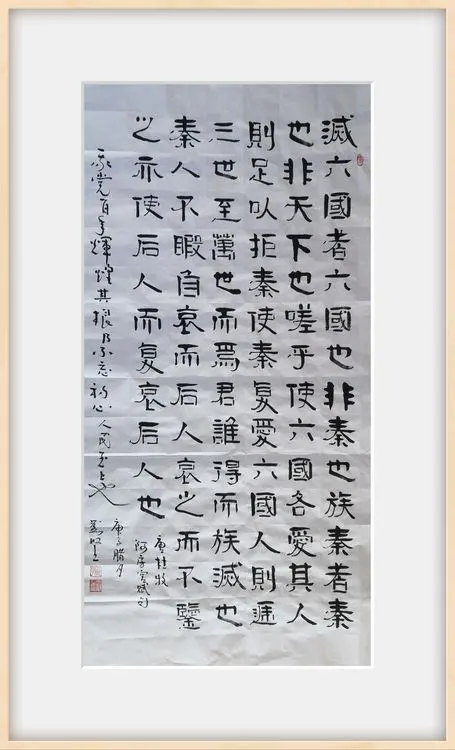 滅六國者六國也非秦也族秦者秦
也非天下也嗟乎使六國各愛其人
則足以拒秦使秦复愛六國人則遞
三世至萬世而爲君誰得而族滅也
秦人不暇自哀而后人哀之而不鑒
之亦使后人而复哀后人也
唐杜牧
阿房宫赋句
我党百年輝煌其根乃不忘初心人民至上也
庚子腊月